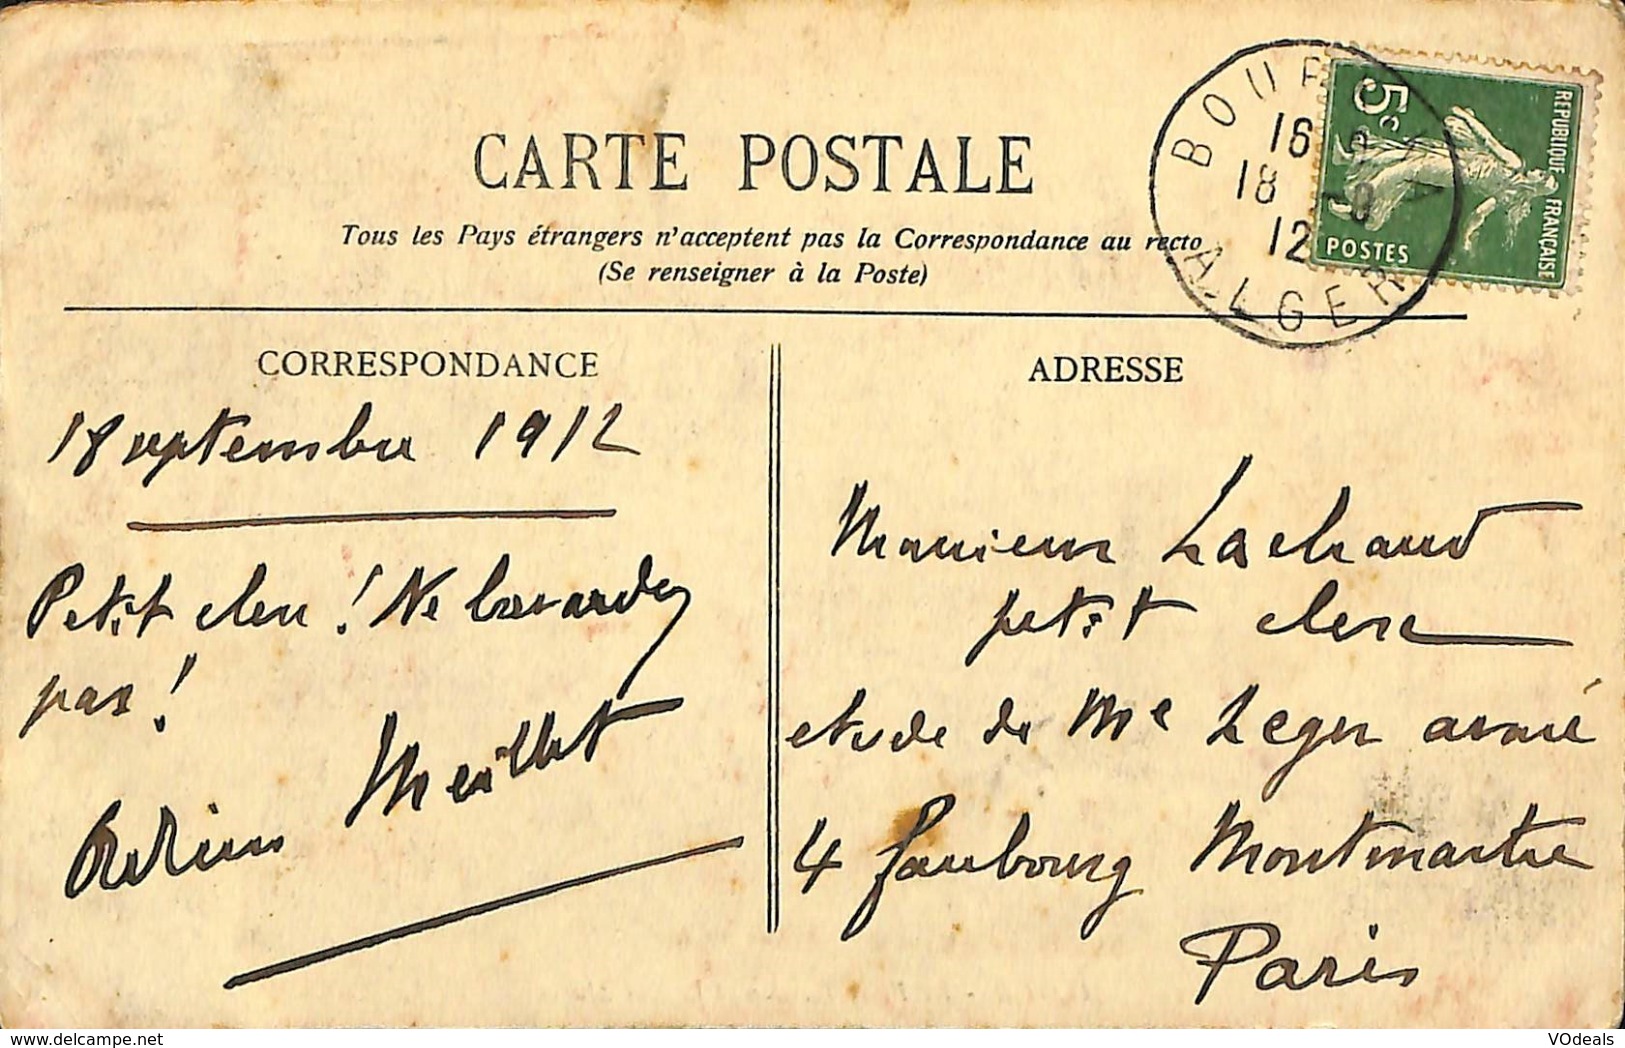 CARTE POSTALE
Tous les Pays étrangers n'acceptent pas la Correspondance au recto
(Se renseigner à la Poste)
BOU
16
18
12
ALGER
5c
POSTES
REPUBLIQUE FRANÇAISE
CORRESPONDANCE
18 septembre 1912
Petit clerc ! Ne bavardez
pas !
Meillet
ADRESSE
Monsieur Lachaud
petit clerc
étude de Me Leger avoué
4 faubourg Montmartre
Paris
VOdeals
delcampe.net